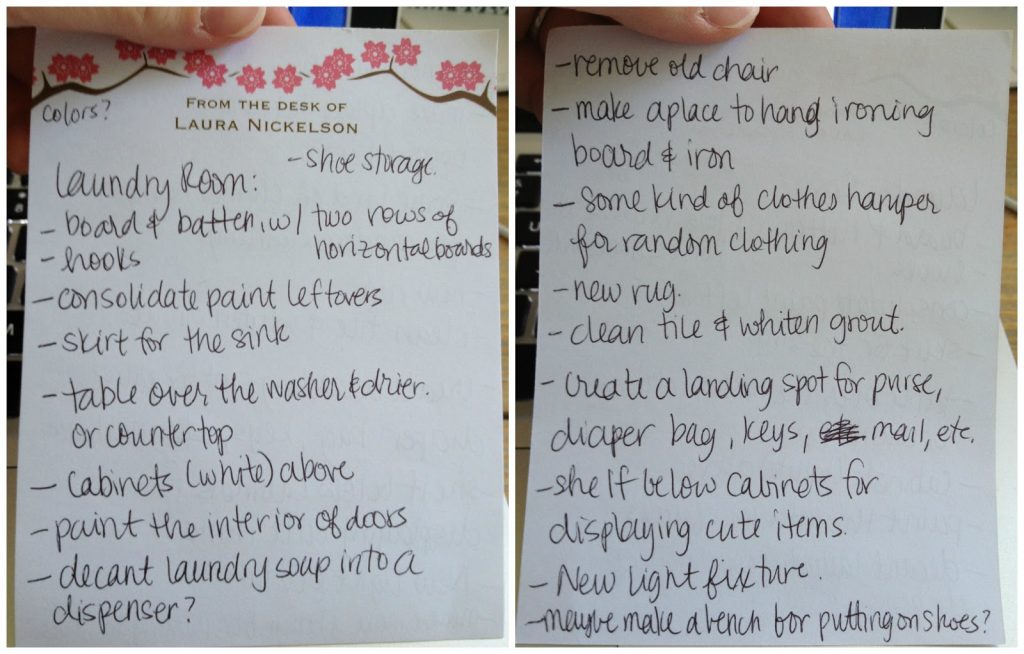 colors?
FROM THE DESK OF
LAURA NICKELSON
- shoe storage.
laundry Room:
- board & batten w/ two rows of
horizontal boards
- hooks
- consolidate paint leftovers
- skirt for the sink
- table over the washer & drier.
or countertop
- cabinets (white) above
- paint the interior of doors
- decant laundry soap into a
dispenser?
- remove old chair
- make a place to hang ironing
board & iron
- some kind of clothes hamper
for random clothing
- new rug.
- clean tile & whiten grout.
- create a landing spot for purse,
diaper bag, keys, mail, etc.
- shelf below cabinets for
displaying cute items.
- New light fixture.
- maybe make a bench for putting on shoes?